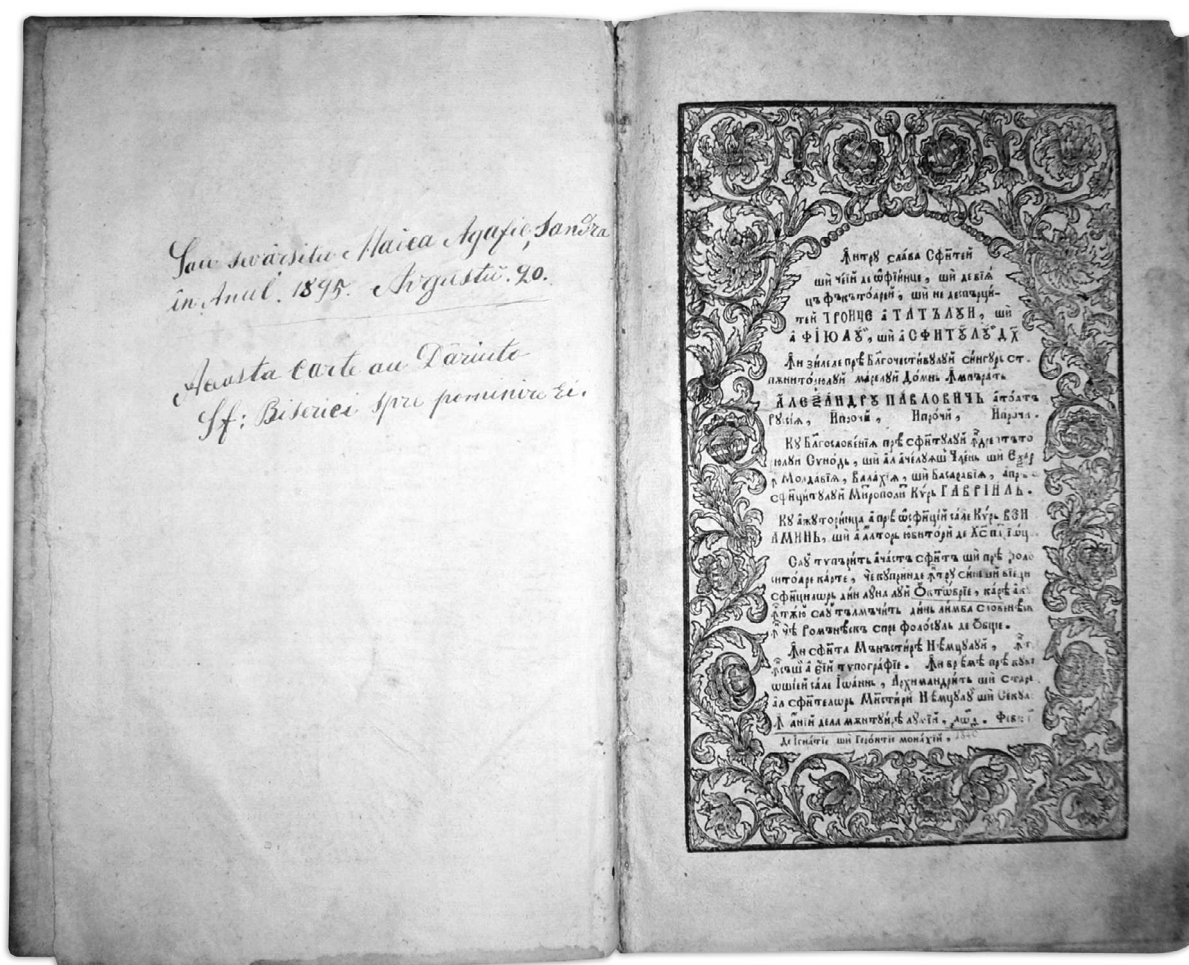 Sau săvârsitu Maica Agafie, Sandra
în Anul. 1895. Avgustŭ. 20.
Acosta carte au Dăriuto
Sf: Biserici spre pominire Ei.
Ꙟтру слава Сфи́тей
ши де ѡ҆фїи́нце, ши
цъ фъкъто́арей, ши не деспърци-
тей ТРОИЦЕ а ТАТЪЛꙋИ, ши
а ФЇЮЛꙋЙ, ши а СФИТꙋЛꙋЙ ДХ
Ꙟн зи́леле прѣ Благочести́вꙋлꙋй сингꙋръ ст-
пѫнито́рюлꙋй ма́релꙋй До́мнь Ꙟмпъра́ть
АЛЕѮА́НДРꙋ ПА́ВЛОВИЧЬ а то́атъ
Рꙋсїѧ, Ипро́чїѧ, Ипро́чїѧ, Ипро́чїѧ.
Кꙋ Благословенїѧ прѣ сфи́тꙋлꙋй
Сѵно́дь, ши ал аче́лꙋѧш Чле́нь ши Еѯар
Молда́вїѧ, Вала́хїѧ, ши Басара́бїѧ,
сфинци́тꙋлꙋй Митрополи́т Кѵ́рь ГАВРЇИ́ЛЬ.
Кꙋ ажꙋтори́нца а прѣ ѡсфинці́ей са́ле Кѵ́рь ВЕНЇ
АМИ́НЬ, ши а алторь юбито́ри де
Саꙋ типъри́ть ача́стъ сфи́тъ ши прѣ фоло
сито́аре ка́рте, че кꙋпри́нде ꙟтрꙋ си́не
сфинцилѡрь дин лꙋна лꙋй Ѻкто́мврїе, ка́рѣ
саꙋ тълмъчи́ть динь ли́мба словенѣ́скъ
чѣ Ромънѣ́скъ спре фоло́сꙋль де ѻ́бще.
Ꙟн сфи́нта Мънъсти́рѣ Нѣ́мцꙋлꙋй,
а е́ей тѵпогра́фїе. Ꙟн врѣ́мѣ прѣ кꙋвї
ѡшїей са́ле Іѡа́ннь, Архимандри́ть ши Ста́ре
ал сфи́телѡрь Мънъсти́ри Нѣ́мцꙋлꙋ ши Секꙋл
Ꙟ а́нїй дела мѫнтꙋи́рѣ лꙋ́мїй, Фев
де Игна́тїе ши Геро́нтїе мона́хїй,